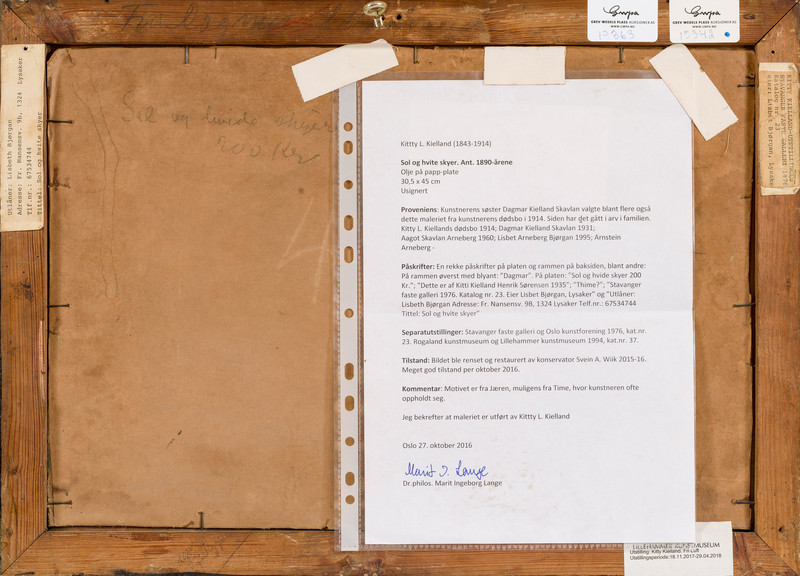 Gwpa
GREV WEDELS PLASS AUKSJONER AS
WWW.GWPA.NO
Gwpa
GREV WEDELS PLASS AUKSJONER AS
WWW.GWPA.NO
Utlåner: Lisbeth Bjørgan
Adresse: Fr. Nansensv. 9b, 1324 Lysaker
Tlf.nr.: 67534744
Tittel: Sol og hvite skyer
Sol og hvide skyer
200 Kr
KITTY KIELLAND-UTSTILLING
STAVANGER FASTE GALLERI 1976
Katalog nr. 23
Eier: Lisbet Bjørgan, Lysaker
Kittty L. Kielland (1843-1914)
Sol og hvite skyer. Ant. 1890-årene
Olje på papp-plate
30,5 x 45 cm
Usignert
Proveniens: Kunstnerens søster Dagmar Kielland Skavlan valgte blant flere også
dette maleriet fra kunstnerens dødsbo i 1914. Siden har det gått i arv i familien.
Kitty L. Kiellands dødsbo 1914; Dagmar Kielland Skavlan 1931;
Aagot Skavlan Arneberg 1960; Lisbet Arneberg Bjørgan 1995; Arnstein
Arneberg -
Påskrifter: En rekke påskrifter på platen og rammen på baksiden, blant andre:
På rammen øverst med blyant: ”Dagmar”. På platen: ”Sol og hvide skyer 200
Kr.”; ”Dette er af Kitti Kielland Henrik Sørensen 1935”; ”Thime?”; ”Stavanger
faste galleri 1976. Katalog nr. 23. Eier Lisbet Bjørgan, Lysaker” og ”Utlåner:
Lisbeth Bjørgan Adresse: Fr. Nansensv. 9B, 1324 Lysaker Telf.nr.: 67534744
Tittel: Sol og hvite skyer”
Separatutstillinger: Stavanger faste galleri og Oslo kunstforening 1976, kat.nr.
23. Rogaland kunstmuseum og Lillehammer kunstmuseum 1994, kat.nr. 37.
Tilstand: Bildet ble renset og restaurert av konservator Svein A. Wiik 2015-16.
Meget god tilstand per oktober 2016.
Kommentar: Motivet er fra Jæren, muligens fra Time, hvor kunstneren ofte
oppholdt seg.
Jeg bekrefter at maleriet er utført av Kittty L. Kielland
Oslo 27. oktober 2016
Marit I. Lange
Dr.philos. Marit Ingeborg Lange
LILLEHAMMER KUNSTMUSEUM
Utstilling: Kitty Kielland. Fri Luft
Utstillingsperiode: 18.11.2017-29.04.2018